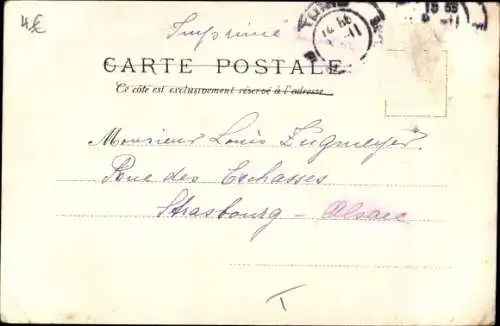 4€
Imprimé
CARTE POSTALE
Ce côté est exclusivement réservé à l'adresse
Monsieur Louis Zugmeyer.
Rue des Echasses
Strasbourg - Alsace
T